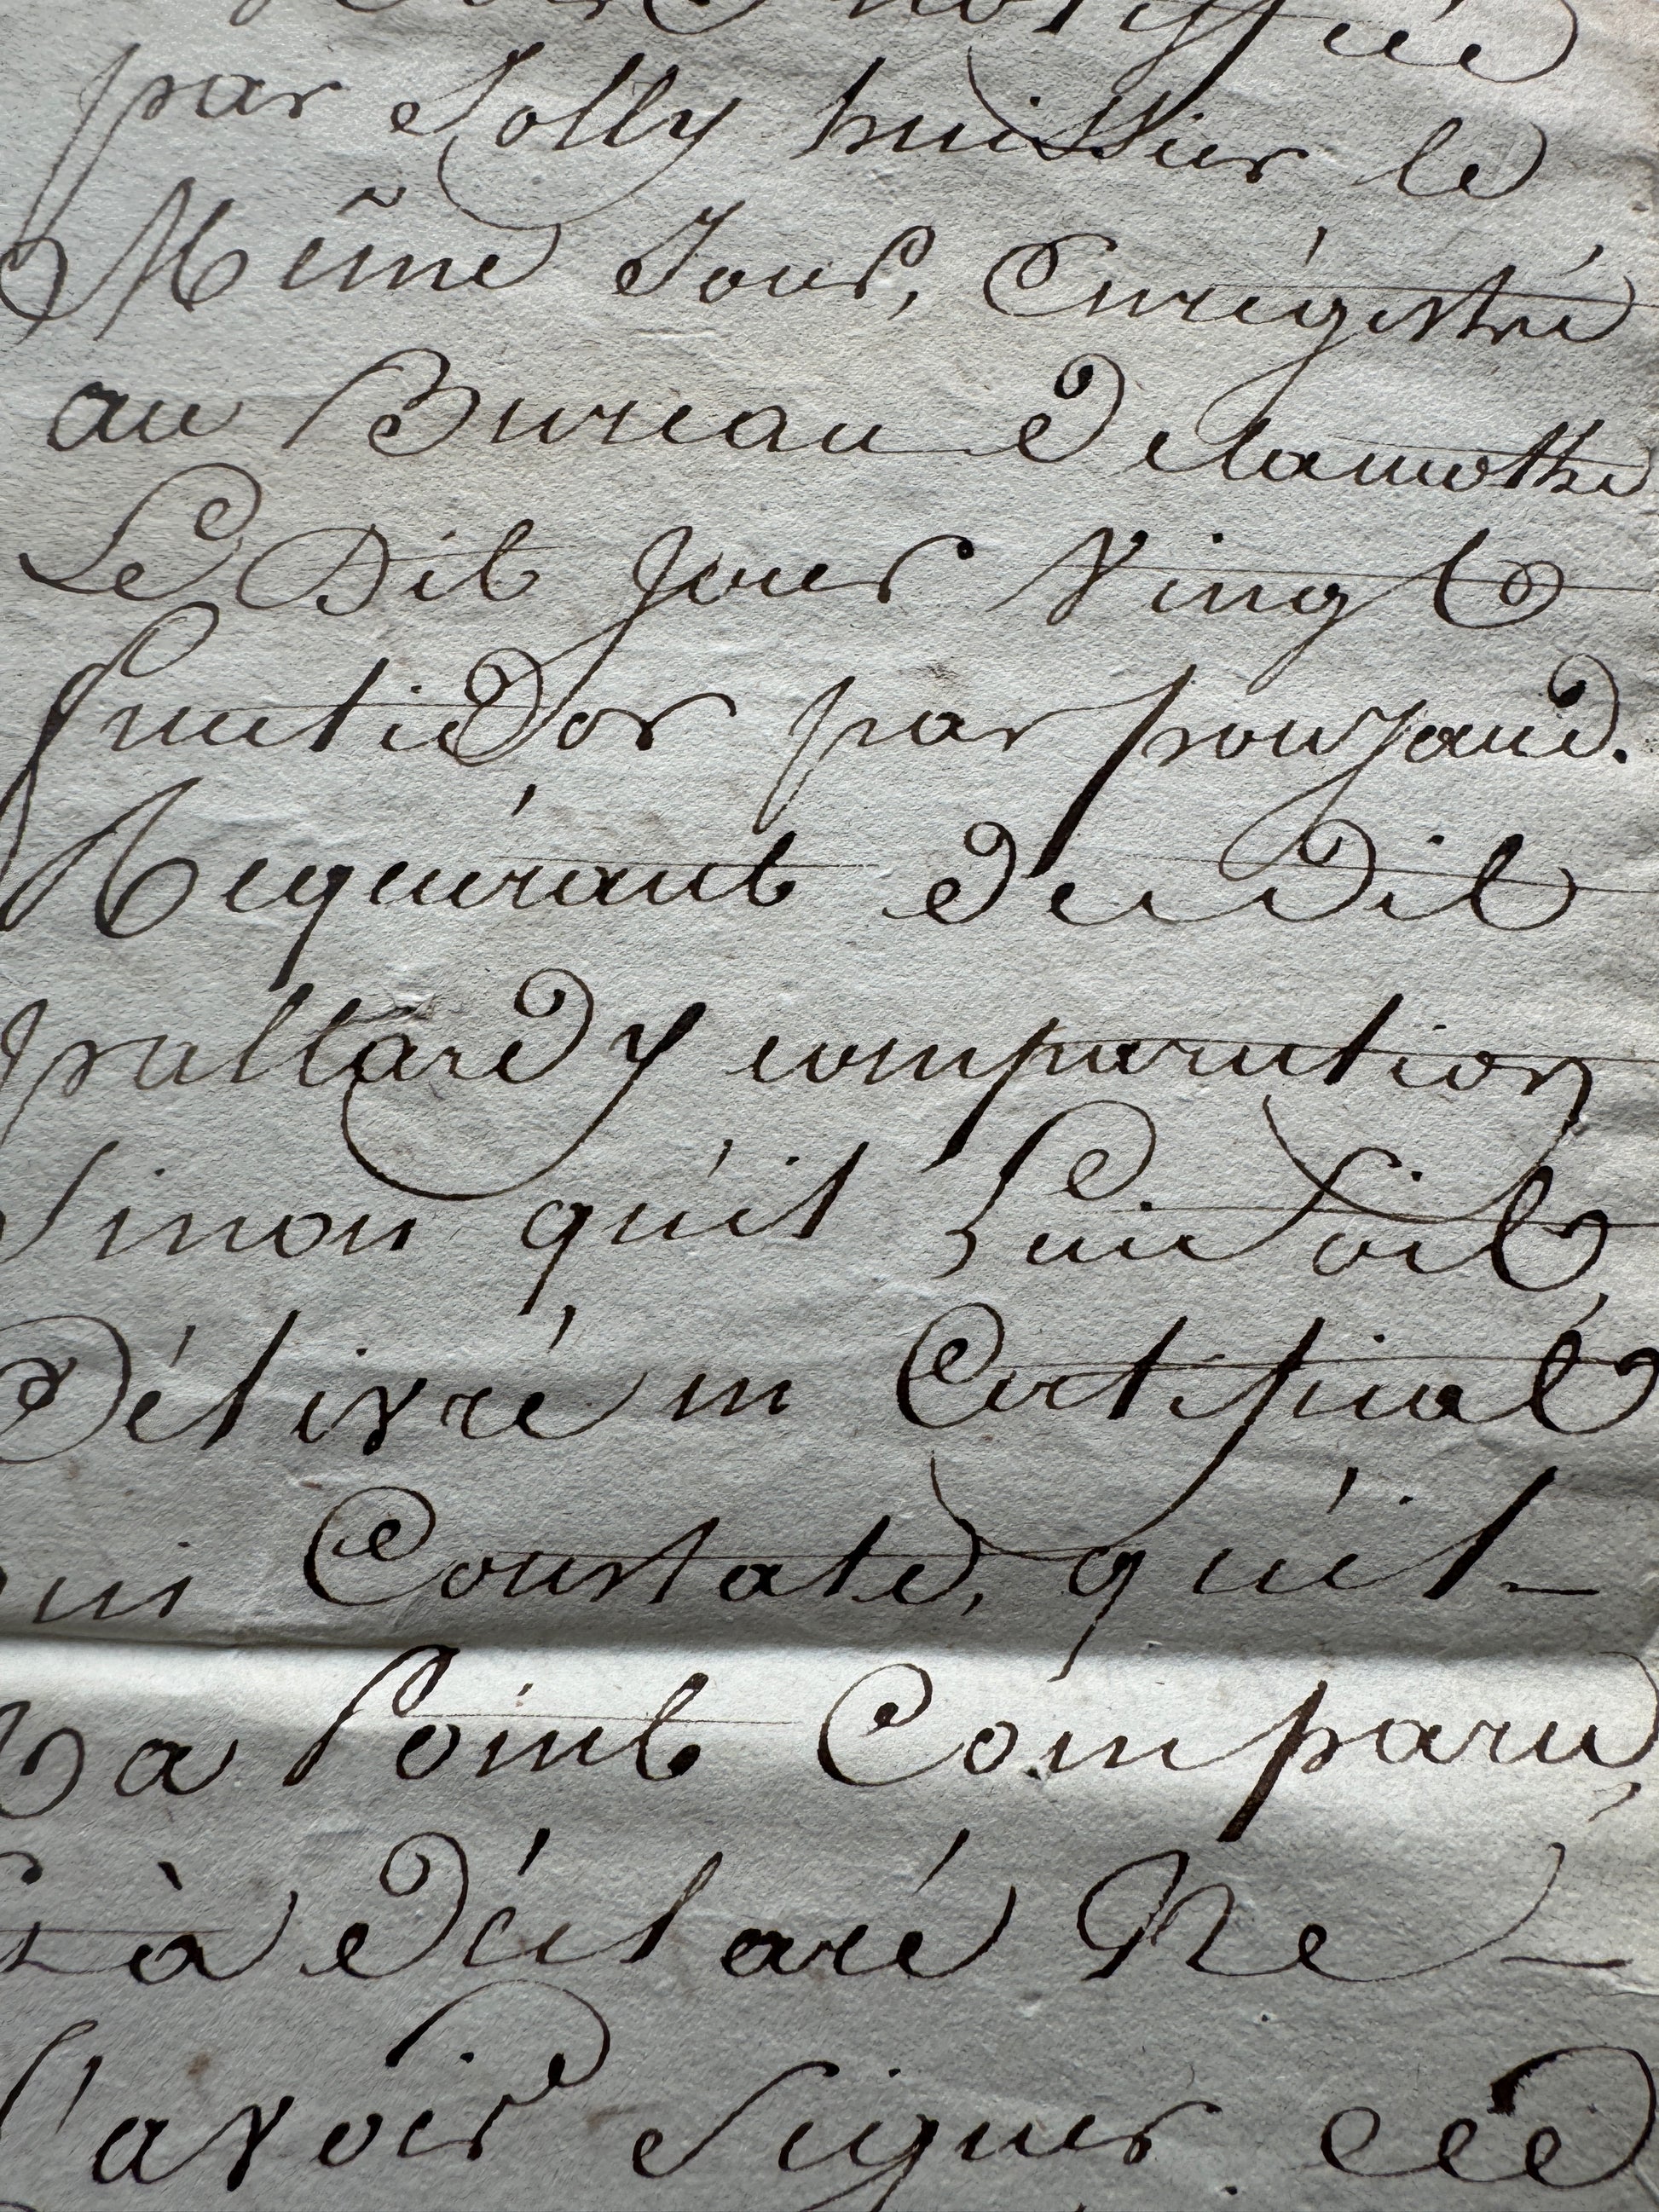 notiffiée
par Jolly huissier le
Même Jour, Enrégistré
au Bureau Delamothe
Le Dit Jour Vingt
fructidor par poujaud.
Requérant du dit
paltard y comparution
Sinon qu'il Lui Soit
Délivré un Certificat
qui Constate, qu'il
Na Point Comparu,
Et à Déclaré Ne
Savoir Signer